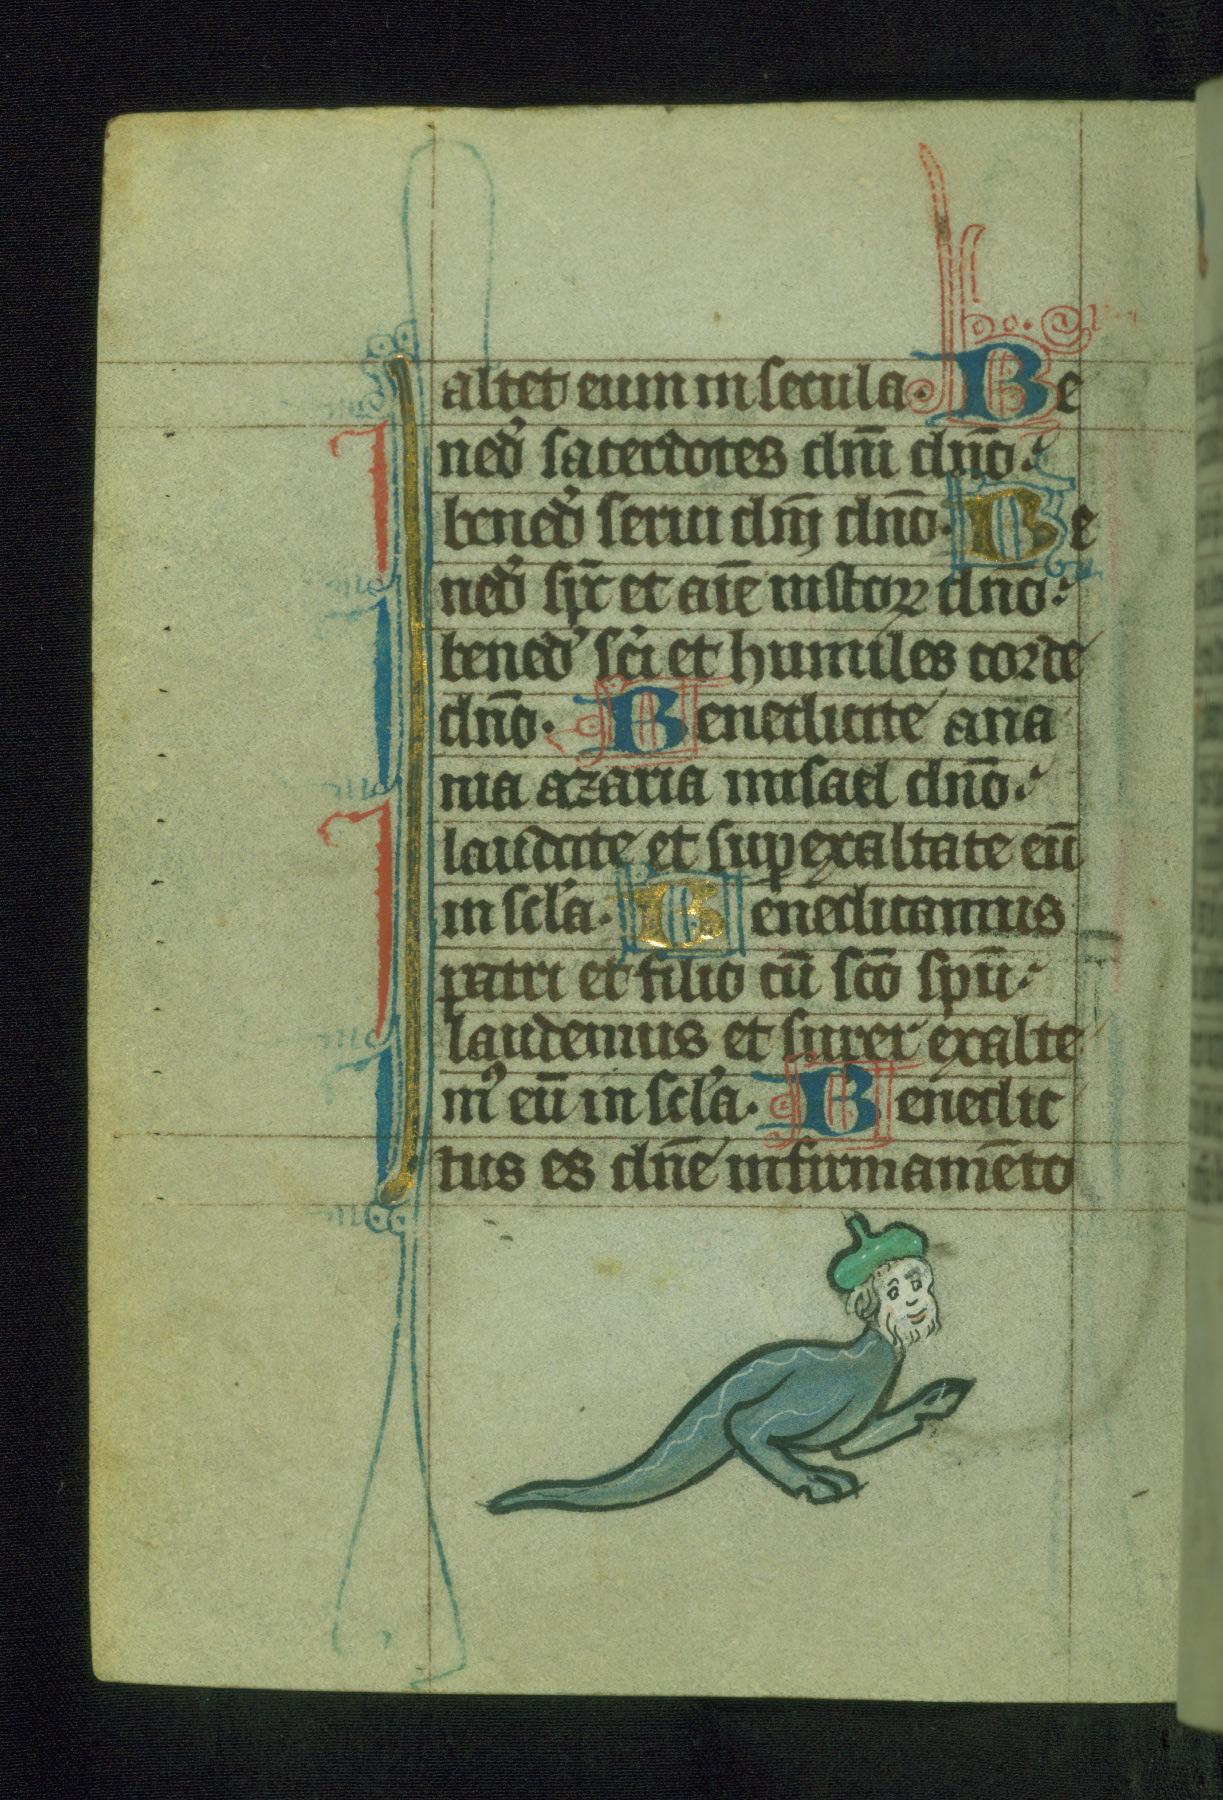 altet eum in secula. Be
ned̾ sacerdotes dn̄i dn̄o:
bened̾ serui dn̄j dn̄o. Be
ned̾ sp̄c et aīe iustoꝝ dno:
bened̾ sc̄i et humiles corde
dn̄o. Benedicite ana
nia azaria misael dn̄o:
laudate et suꝑexaltate eū
in scl̾a. Benedicamus
patri et filio cū sc̄o sp̄u:
laudemus et super exalte
mꝰ eū in scl̾a. Benedic
tus es dn̄e in firmamēto